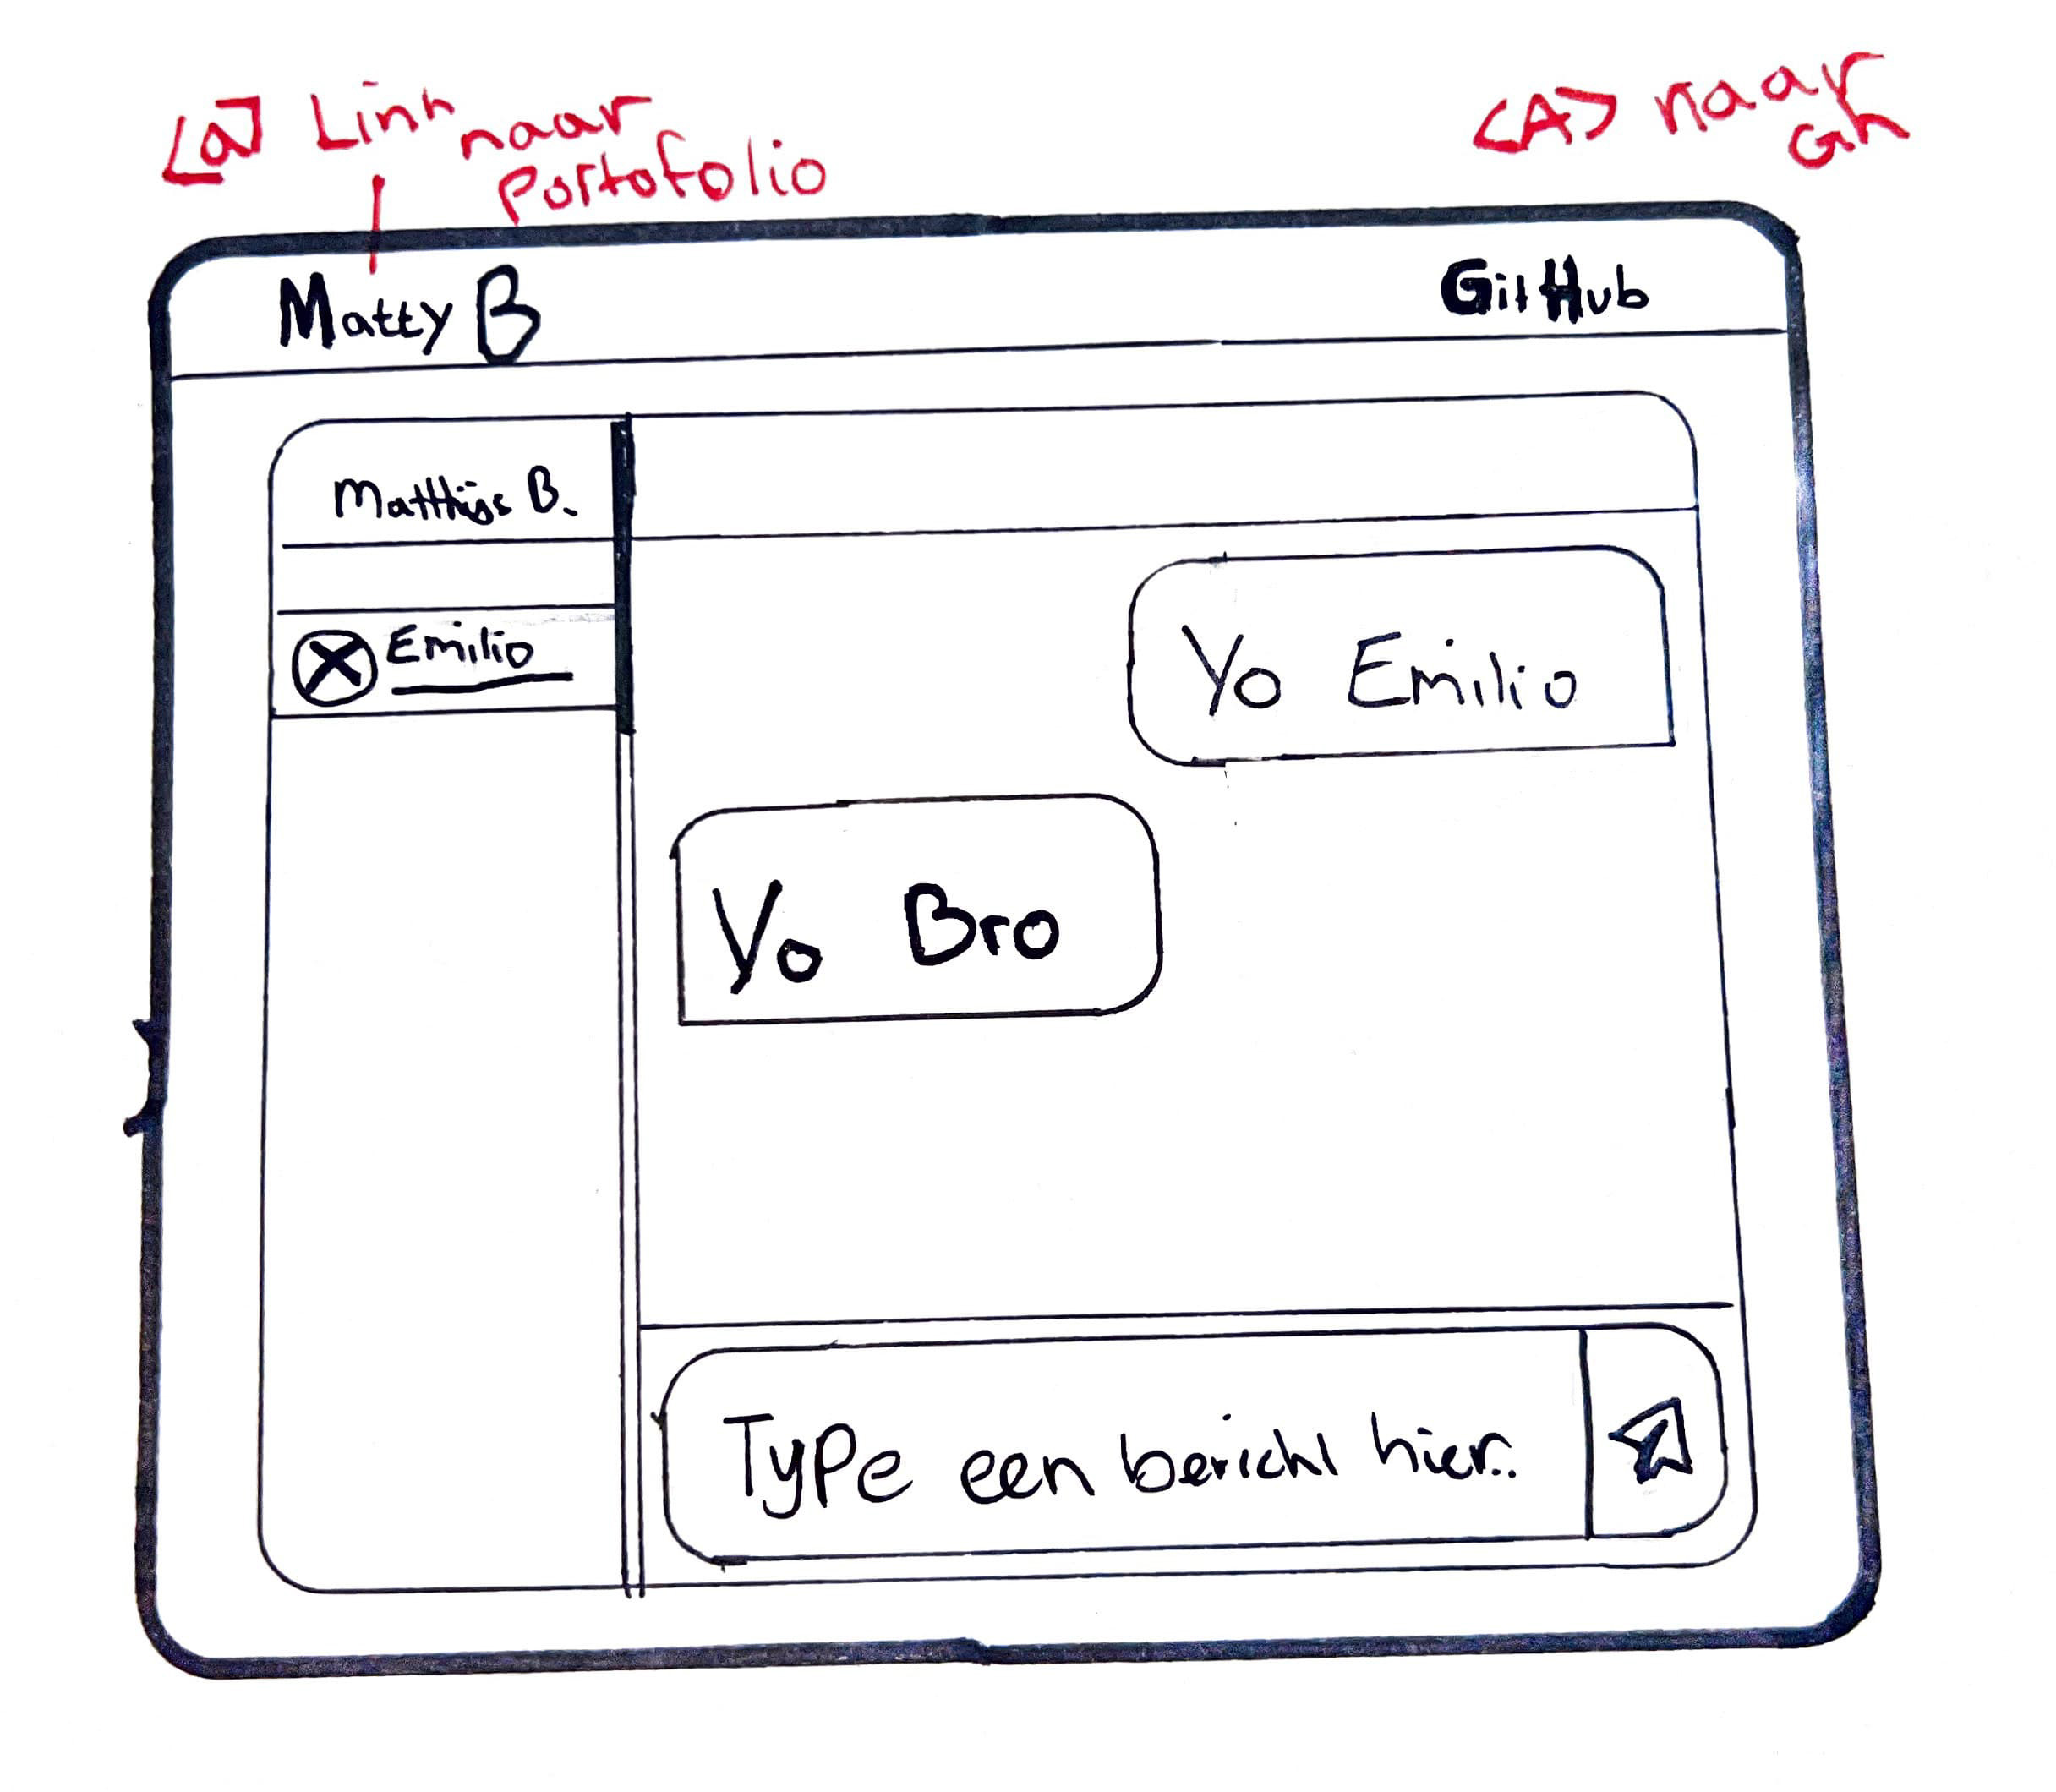 [a] Link naar
Portofolio
<A> naar
Gh
Matty B
GitHub
Matthijs B.
Emilio
Yo Emilio
Yo Bro
Type een bericht hier..